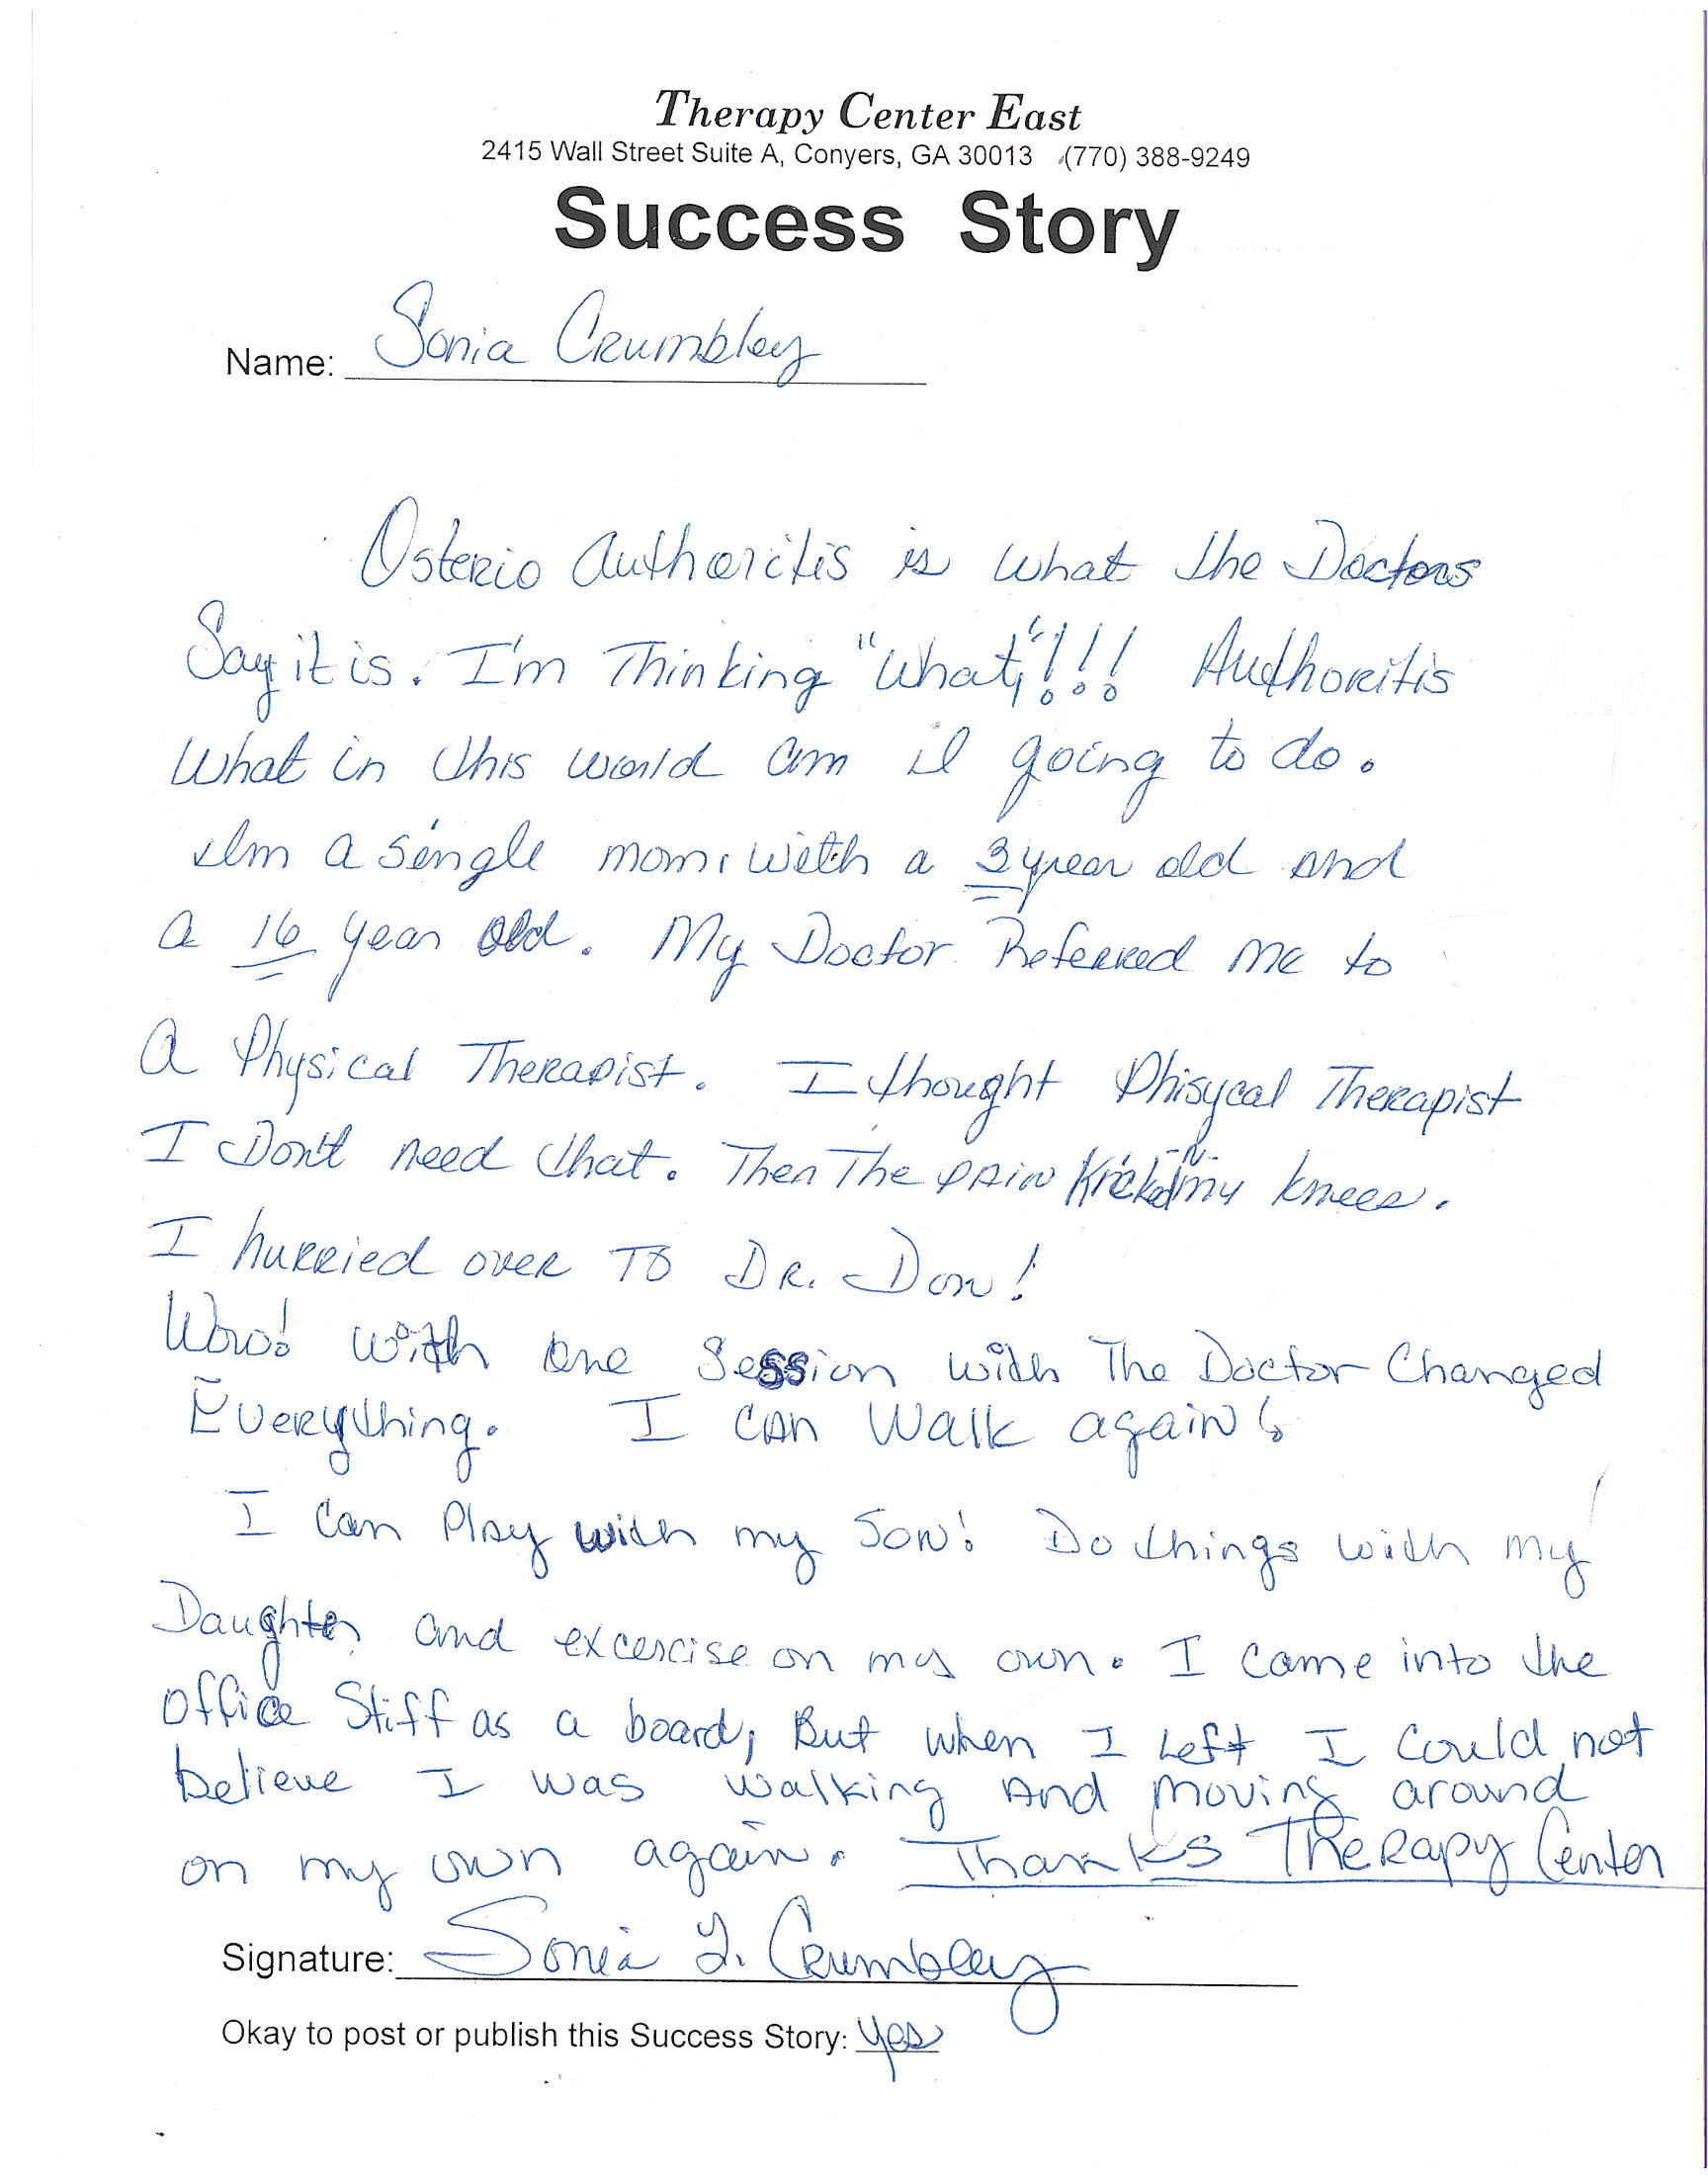 Therapy Center East
2415 Wall Street Suite A, Conyers, GA 30013 (770) 388-9249
Success Story
Name: Sonia Crumbley
Osterio Authoritis is what the Doctors
Say it is. I'm Thinking "What,"!!! Authoritis
What in this world am I going to do.
Im a single mom, with a 3 year old and
a 16 year old. My Doctor Referred me to
a Physical Therapist. I thought Phisycal Therapist
I Don't need that. Then The pain Kicked-N-my knees.
I hurried over To Dr. Don!
Wow! With one Session with The Doctor Changed
Everything. I can Walk again!
I can Play with my Son! Do things with my
Daughter and excercise on my own. I came into the
office Stiff as a board, But when I left I could not
believe I was walking and moving around
on my own again. Thanks Therapy Center
Signature: Sonia Y. Crumbley
Okay to post or publish this Success Story: yes